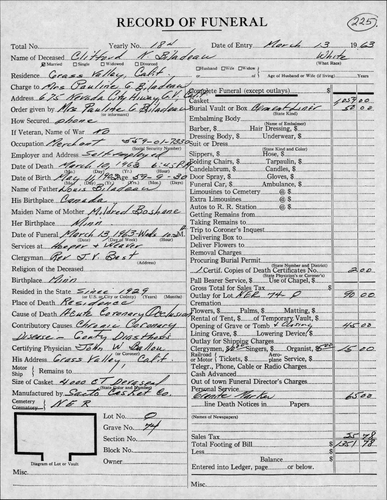 RECORD OF FUNERAL
225
Total No. Yearly No. 18 Date of Entry March 13 1963
Name of Deceased Clifford N. Biladeau White
Married Single Widowed Divorced Husband Wife Widow (What Race)
Residence Grass Valley, Calif. of Age of Husband or Wife (if living)
Charge to Mrs. Pauline G. Biladeau
Address 675 Nevada City Hiway G.V. Calif
Order given by Mrs Pauline G Biladeau
How Secured phone
If Veteran, Name of War no
Occupation Merchant
(Social Security Number)
Employer and Address Self employed
Date of Death March 10 1963 6:45 P.M.
Date of Birth
Name of Father Louis Biladeau
His Birthplace Canada
Maiden Name of Mother Mildred
Her Birthplace Minn
Date of Funeral March 13, 1963 Wed.
Services at Hooper & Weaver
Clergyman Rev J.V. Best
(Address)
Religion of the Deceased
Birthplace Minn
Resided in the State Since 1929
Place of Death Residence
Cause of Death Acute Coronary Occlusion
Contributory Causes Chronic Coronary
Disease
Certifying Physician John W.
His Address Grass Valley, Calif.
Motor Ship Remains to
Size of Casket
Manufactured by Santo Casket Co.
Cemetery Crematory N.E.R
Lot No. 0
Grave No. 74
Section No.
Block No.
Owner
Diagram of Lot or Vault
Misc.
Complete Funeral (except outlays) $
Casket
Burial Vault or Box Cement Liner 50 00
(State Kind)
Embalming Body
(Name of Embalmer)
Barber, $ Hair Dressing, $
Dressing Body, $ Underwear, $
Suit or Dress
(State Kind and Color)
Slippers, $ Hose, $
Folding Chairs, $ Tarpaulin, $
Candelabrum, $ Candles, $
Door Spray, $ Gloves, $
Funeral Car, $ Ambulance, $
Limousines to Cemetery @ $
Extra Limousines @ $
Autos to R. R. Station @ $
Getting Remains from
Taking Remains to
Trip to Coroner's Inquest
Delivering Box to
Deliver Flowers to
Removal Charges
Procuring Burial Permit
(State Number and District)
1 Certif. Copies of Death Certificates No. 2 00
(State Physician's or Coroner's)
Pall Bearer Service, $ Use of Chapel, $
Gross Total for Sales Tax $
Outlay for Lot NER 74-0 90 00
Cremation
Flowers, $ Palms, $ Matting, $
Rental of Tent, $ of Temporary Vault, $
Opening of Grave or Tomb & Lining 45 00
Lining Grave, $ Lowering Device, $
Outlay for Shipping Charges
Clergymen, $ Singers, $ Organist, $ 15 00
Railroad or Motor Tickets, $ Aeroplane Service, $
Telegr., Phone, Cable or Radio Charges
Cash Advanced
Out of town Funeral Director's Charges
Personal Service
Granite Marker 65 00
line Death Notices in Papers
(Names of Newspapers)
Sales Tax $ 25 78
Total Footing of Bill $ 1351 78
Less $
Balance $
Entered into Ledger, page or below.
Misc.